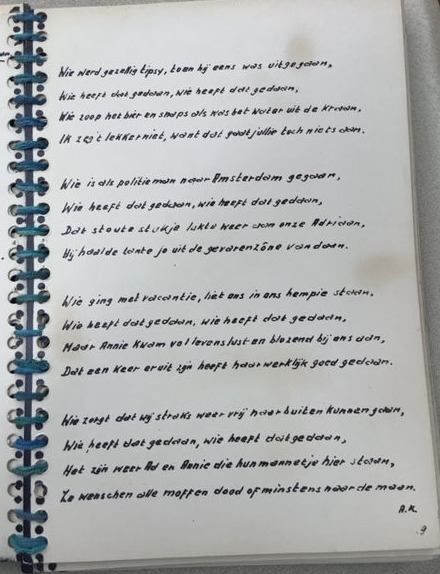 Wie werd gezellig tipsy, toen hij eens was uitgegaan,
Wie heeft dat gedaan, wie heeft dat gedaan,
Wie zoop het bier en snaps als was het water uit de kraan,
Ik zeg 't lekker niet, want dat gaat jullie toch niets aan.
Wie is als politieman naar Amsterdam gegaan,
Wie heeft dat gedaan, wie heeft dat gedaan,
Dat stoute stukje lukte weer aan onze Adriaan,
Hij haalde tante je uit de gevarenzône vandaan.
Wie ging met vacantie, liet ons in ons hempie staan,
Wie heeft dat gedaan, wie heeft dat gedaan,
Maar Annie kwam vol levenslust en blozend bij ons aan,
Dat een keer eruit zijn heeft haar werklijk goed gedaan.
Wie zorgt dat wij straks weer vrij naar buiten kunnen gaan,
Wie heeft dat gedaan, wie heeft dat gedaan,
Het zijn weer Ad en Annie die hun mannetje hier staan,
Ze wenschen alle moffen dood of minstens naar de maan.
A.K.
9